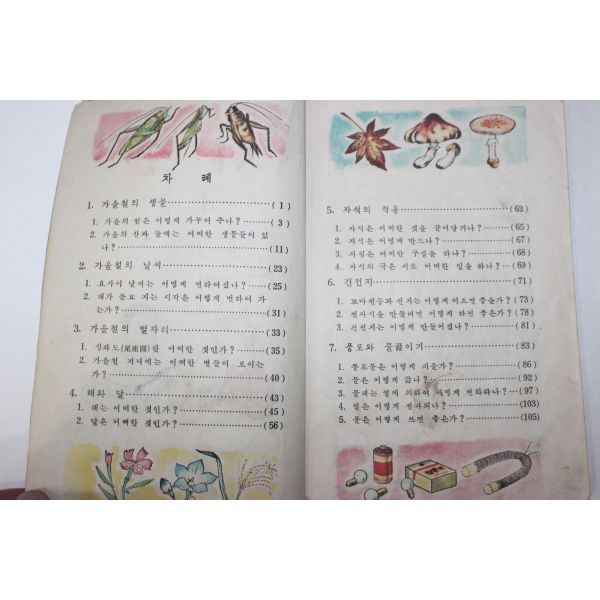 차 례
1. 가을철의 생물 (1)
1. 가을의 밭은 어떻게 가꾸어 주나? (3)
2. 가을의 산과 들에는 어떠한 생물들이 있
나? (11)
2. 가을철의 날씨 (23)
1. 요사이 날씨는 어떻게 변하여졌나? (25)
2. 해가 돋고 지는 시각은 어떻게 변하여 가
는가? (31)
3. 가을철의 별자리 (33)
1. 성좌도(星座圖)란 어떠한 것인가? (35)
2. 가을철 저녁에는 어떠한 별들이 보이는
가? (40)
4. 해와 달 (43)
1. 해는 어떠한 것인가? (45)
2. 달은 어떠한 것인가? (56)
5. 자석의 작용 (63)
1. 자석은 어떠한 것을 끌어당기나? (65)
2. 자석은 어떻게 만드나? (67)
3. 자침은 어떠한 구실을 하나? (68)
4. 자석의 극은 서로 어떠한 일을 하나? (69)
6. 건전지 (71)
1. 꼬마전등과 전지는 어떻게 이으면 좋을가? (73)
2. 전자석을 만들려면 어떻게 하면 좋은가? (78)
3. 건전지는 어떻게 만들어졌나? (81)
7. 풍로와 물끓이기 (83)
1. 풍로불은 어떻게 피울가? (86)
2. 물은 어떻게 끓나? (92)
3. 물체는 열에 의하여 어떻게 변화하나? (97)
4. 열은 어떻게 전하되나? (103)
5. 불은 어떻게 쓰면 좋은가? (105)